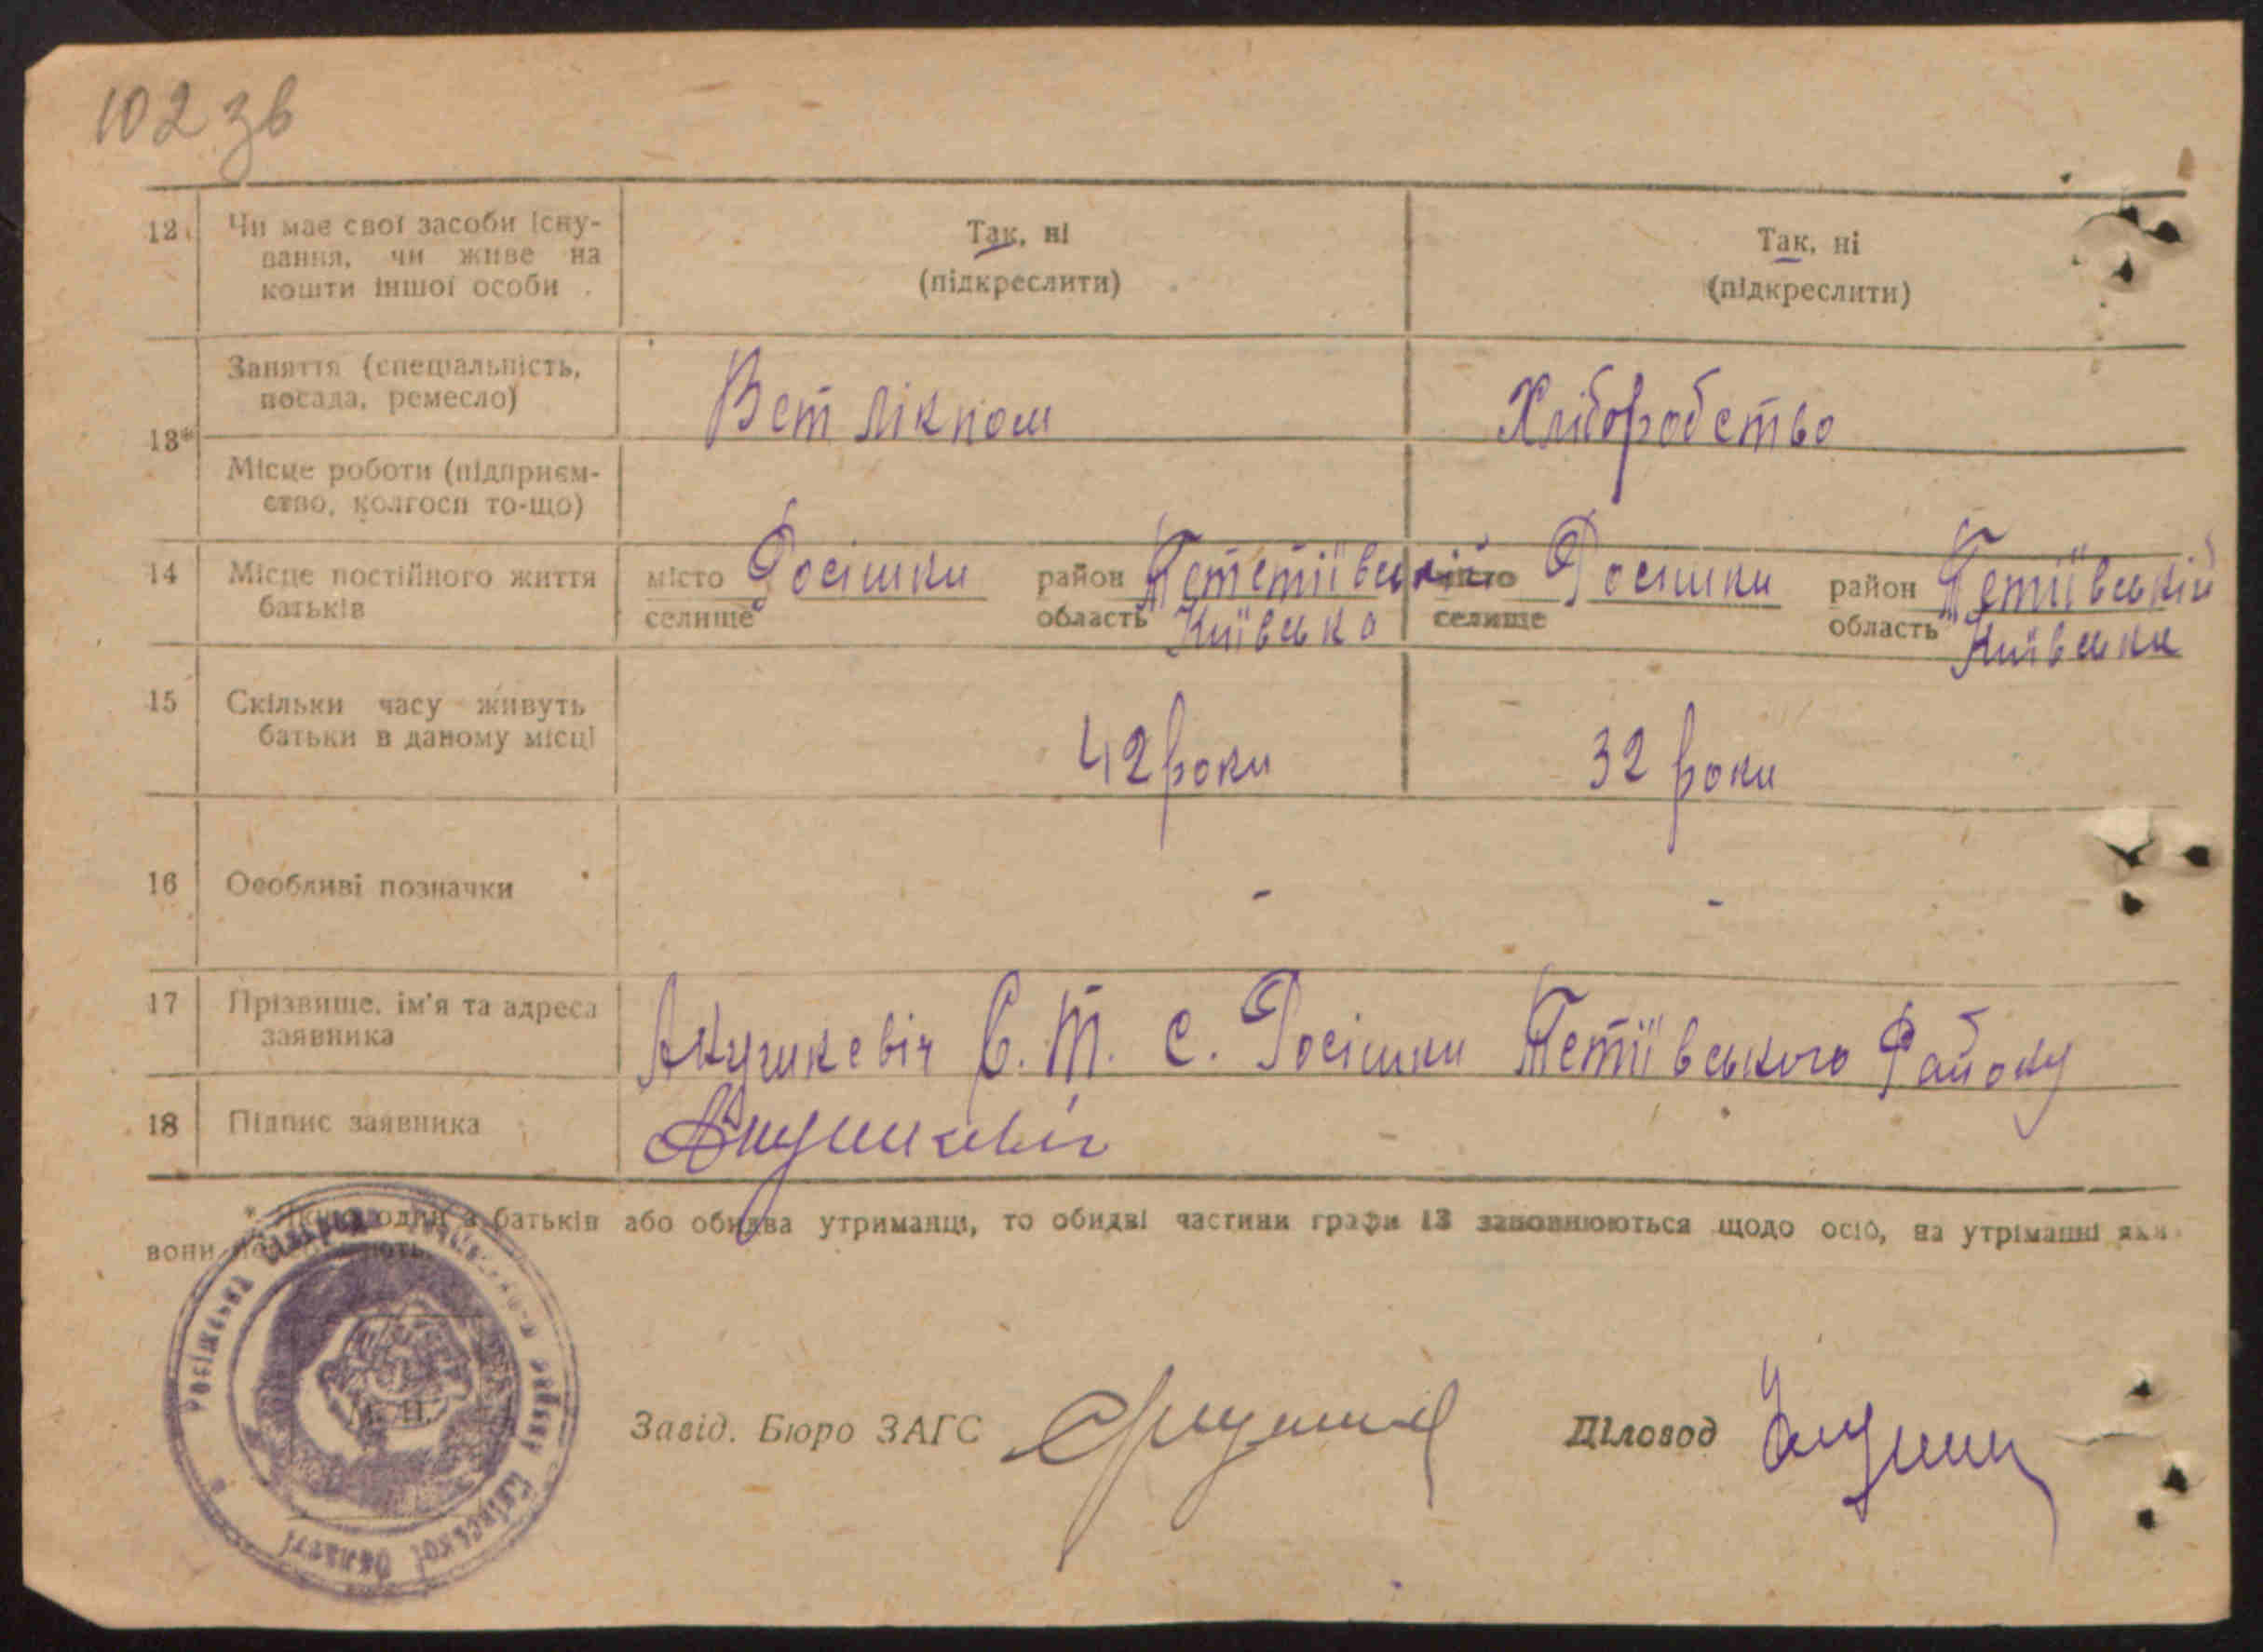 102 зв
12. Чи має свої засоби існу-
вання, чи живе на
кошти іншої особи.
Так, ні
(підкреслити)
Так, ні
(підкреслити)
13*
Заняття (спеціальність,
посада, ремесло)
Вет лікпом
Хліборобство
Місце роботи (підприєм-
ство, колгосп то-що)
14 Місце постійного життя
батьків
місто Росішки район Тететіївській
селище область Київська
місто Росішки район Тетіївській
селище область Київська
15 Скільки часу живуть
батьки в даному місці
42 роки
32 роки
16 Особливі позначки
-
-
17 Прізвище, ім'я та адреса
заявника
Янушкевіч С. Т. С. Росішки Тетіївського Району
18 Підпис заявника
Янушкевіч
* Якщо один з батьків або обидва утриманці, то обидві частини графи 13 заповнюються щодо осіб, на утріманні яки
вони
Росішська
району Київської Області
М. П.
Завід. Бюро ЗАГС
Діловод